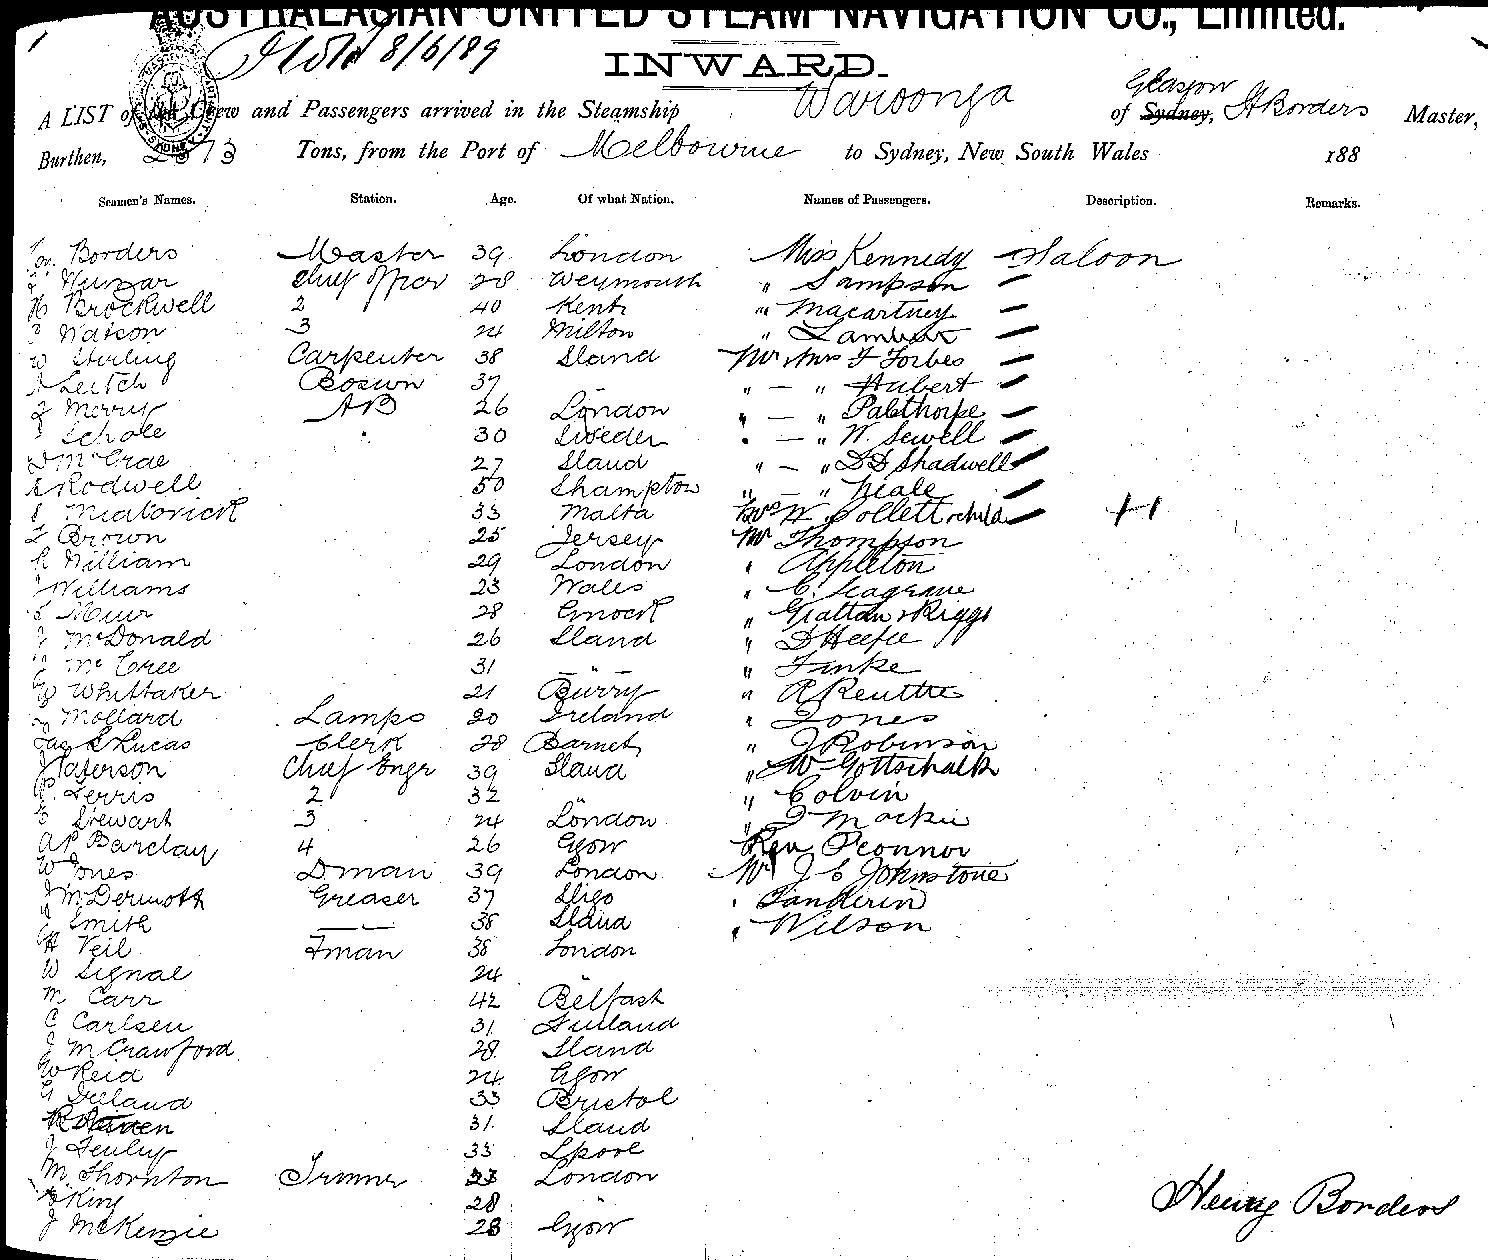 AUSTRALASIAN UNITED STEAM NAVIGATION CO., Limited.
8/6/89
INWARD.
A LIST of the Crew and Passengers arrived in the Steamship Waroonga of Sydney, Glasgow H Borders Master,
Burthen, 2513 Tons, from the Port of Melbourne to Sydney, New South Wales 188
Seamen's Names. Station. Age. Of what Nation. Names of Passengers. Description. Remarks.
Borders Master 39 London Miss Kennedy Saloon
Chief Officer 28 Weymouth " Sampson —
H Brockwell 2 40 Kent " Macartney —
Watson 3 24 Milton " —
W Stirling Carpenter 38 Sland Mr Mrs F Forbes —
Leitch Bosun 37 " — " Hubert —
J Merry AB 26 London " — " Palethorpe —
30 Sweden " — " W. Sewell —
McCrae 27 Sland " — " D D Shadwell —
Rodwell 50 Shampton " — " Neale —
33 Malta Mrs W Collett & child — H
Brown 25 Jersey Mr Thompson
William 29 London " Appleton
Williams 23 Wales " C. Seagrave
Muir 28 Gnock " Grattan Riggs
J McDonald 26 Sland " D
McCree 31 — " — " Finke
Whittaker 21 Burry " A Reuthe
Mollard Lamps 20 Ireland " Jones
Jas L Lucas Clerk 28 Barnet " J Robinson
J Paterson Chief Engr 39 Sland " W Gottschalk
2 32 " " Colvin
Stewart 3 24 London " J Mackie
A P Barclay 4 26 Ggow Rev O'Connor
W Jones Dman 39 London Mr J E Johnstone
J McDermoth Greaser 37 Sligo " Sanderin
Smith — — 38 Sland " Wilson
H Veil Fman 38 London
W Signal 24 "
M Carr 42 Belfast
C Carlsen 31 Finland
J McCrawford 28 Sland
W Reid 24 Ggow
G Ireland 33 Bristol
31 Sland
J Fenley 33 Lpool
M Thornton Trimmer 23 London
King 28 "
J McKenzie 28 Ggow
Henry Borders